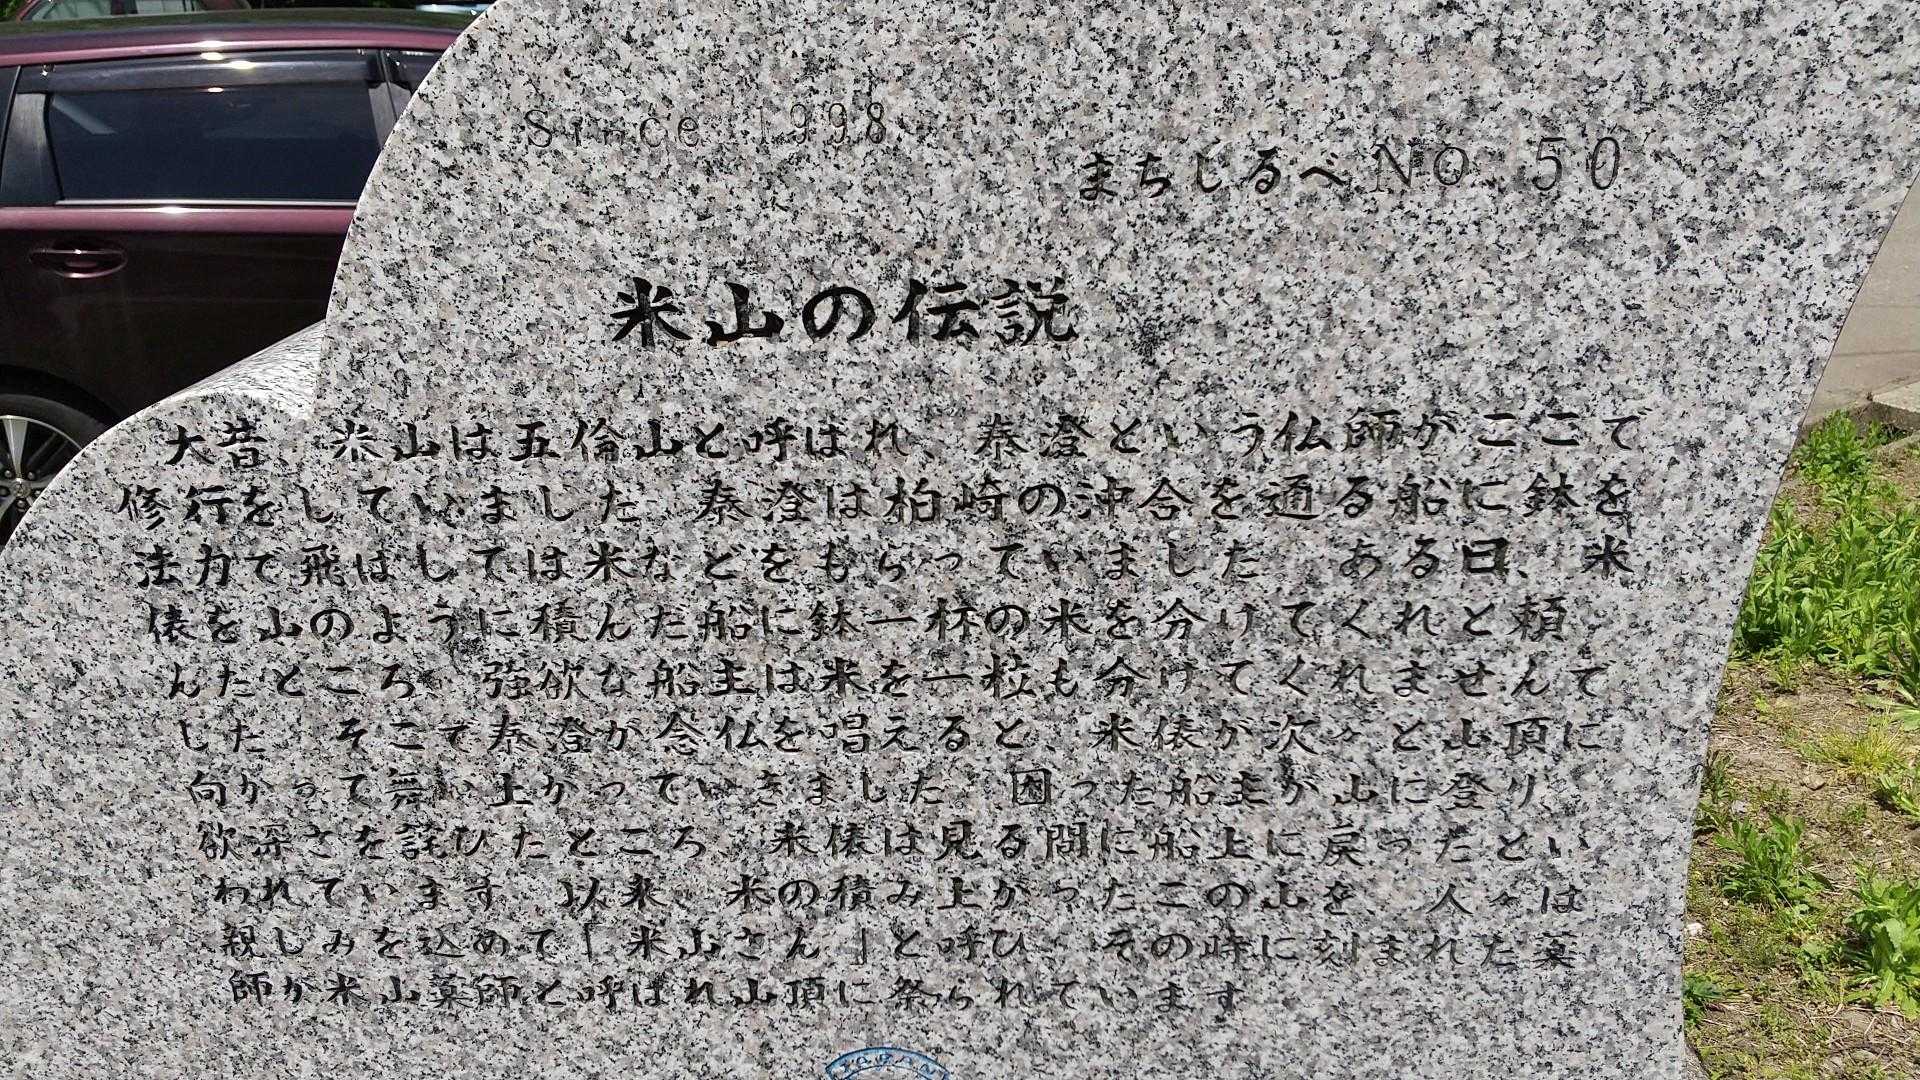 Since 1998
まちしるべ No. 50
米山の伝説
大昔、米山は五倫山と呼ばれ、泰澄という仏師がここで
修行をしていました。泰澄は柏崎の沖合を通る船に鉢を
法力で飛ばしては米などをもらっていました。ある日、米
俵を山のように積んだ船に鉢一杯の米を分けてくれと頼
んだところ、強欲な船主は米を一粒も分けてくれませんで
した。そこで泰澄が念仏を唱えると、米俵が次々と山頂に
向かって舞い上がっていきました。困った船主が山に登り、
欲深さを詫びたところ、米俵は見る間に船上に戻ったとい
われています。以来、米の積み上がったこの山を、人々は
親しみを込めて「米山さん」と呼び、その時に刻まれた薬
師が米山薬師と呼ばれ山頂に祭られています。